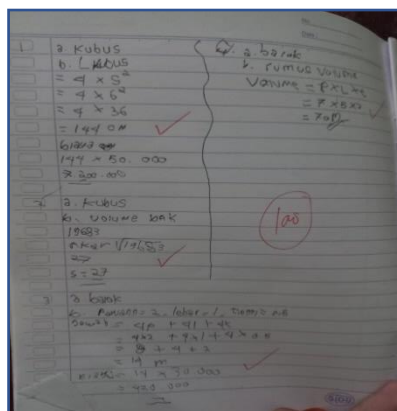 1 a. Kubus
b. L Kubus
= 4 × S²
= 4 × 6²
= 4 × 36
= 144 cm
biaya
144 × 50.000
7.200.000
2 a. Kubus
b. Volume bak
19683
akar ∛19683
27
S = 27
3 a balok
b. Panjang = 2, lebar = 1,
= 4p + 4l + 4t
= 4×2 + 4×1 + 4×0.5
= 8 + 4 + 2
= 14 m
= 14 × 30.000
= 420.000
a. balok
b. rumus volume
Volume = P × L × t
= 7 × 5 × 2
= 70
100